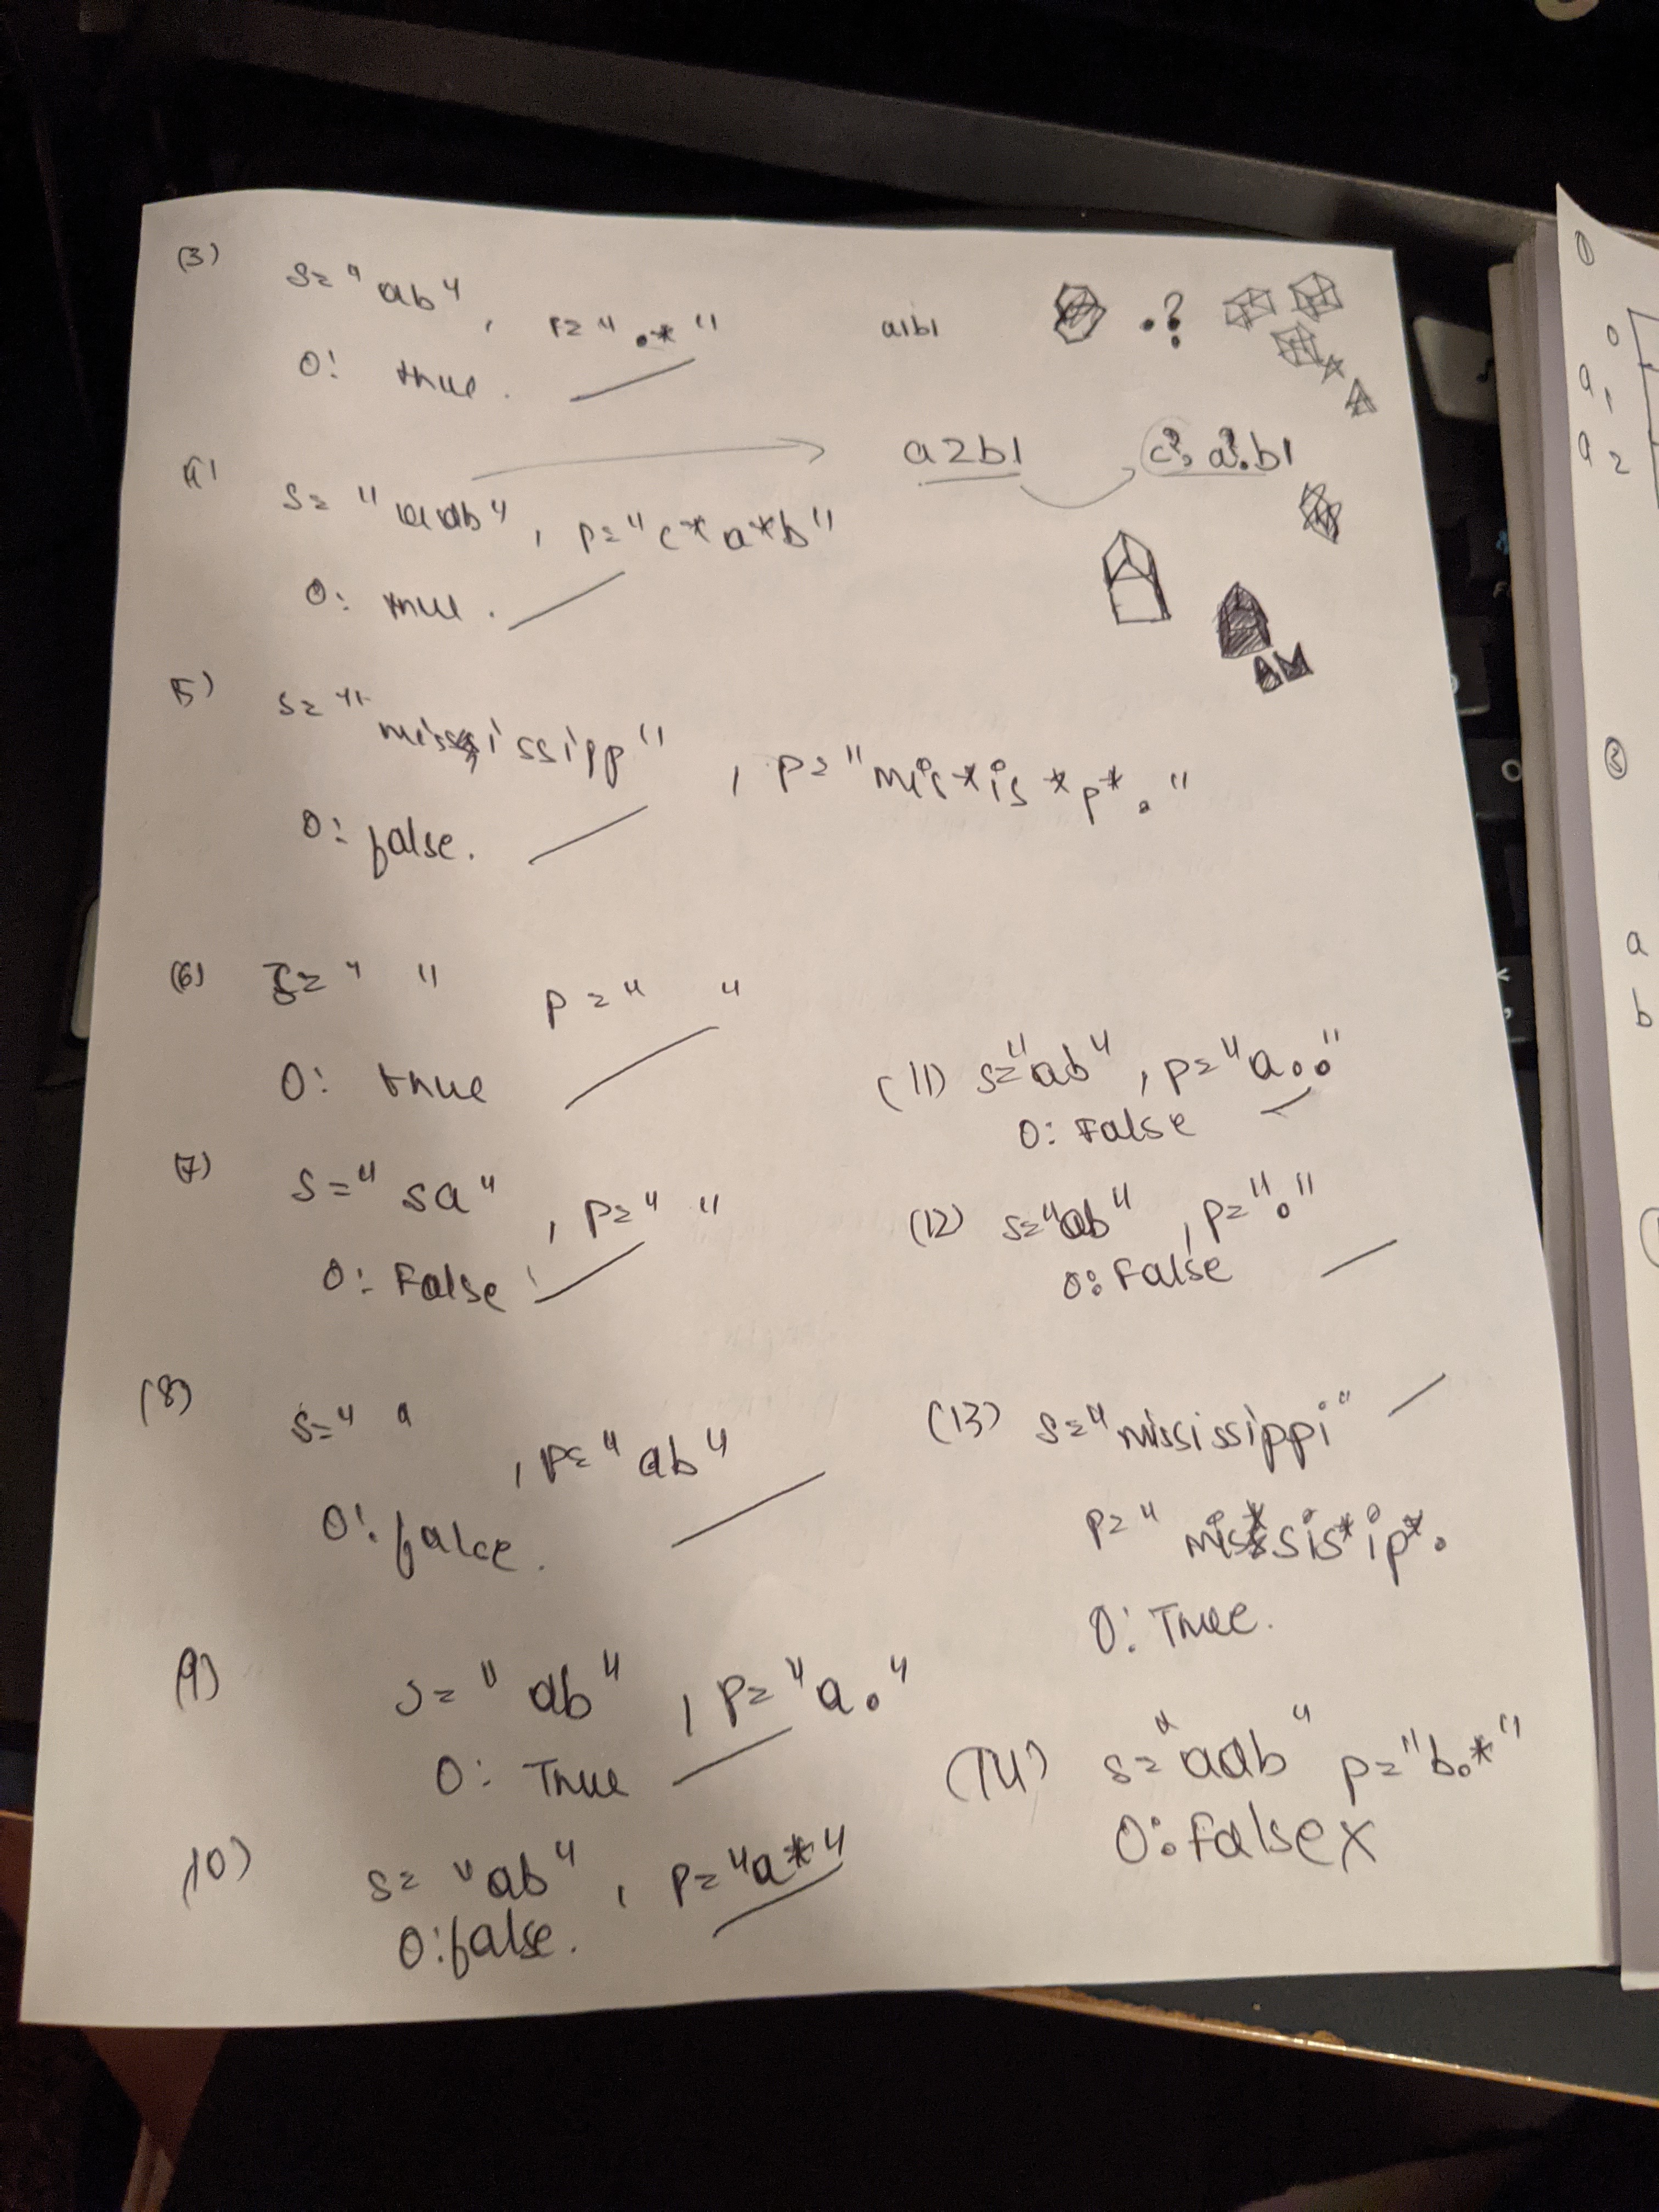 (3) s="ab", p=".*" a1b1 .?
O: true.
(4) s="aab", p="c*a*b" a2b1 c?.a?.b1
O: true.
(5) s="mississipp", p="mis*is*p*."
O: false.
(6) s=" " p=" "
O: true
(7) s="sa", p=" "
O: False
(8) s=" ", p="ab"
O: false.
(9) s="ab", p="a."
O: True
(10) s="ab", p="a*"
O: false.
(11) s="ab", p="a.."
O: False
(12) s="ab", p="."
O: False
(13) s="mississippi"
p="mis*sis*ip*.
O: True.
(14) s="aab" p="b.*"
O: False x
1
0
a1
a2
a
b